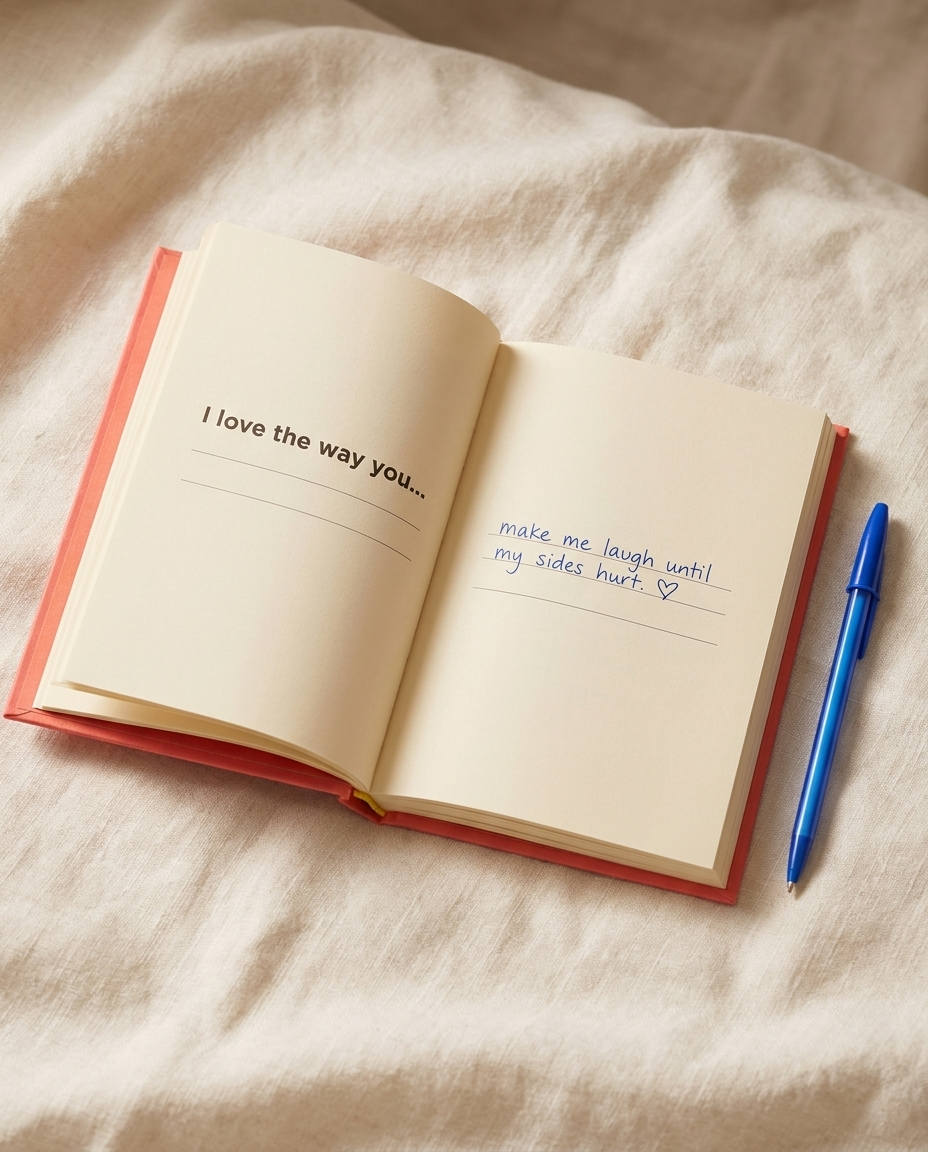 I love the way you...
make me laugh until
my sides hurt. ♡